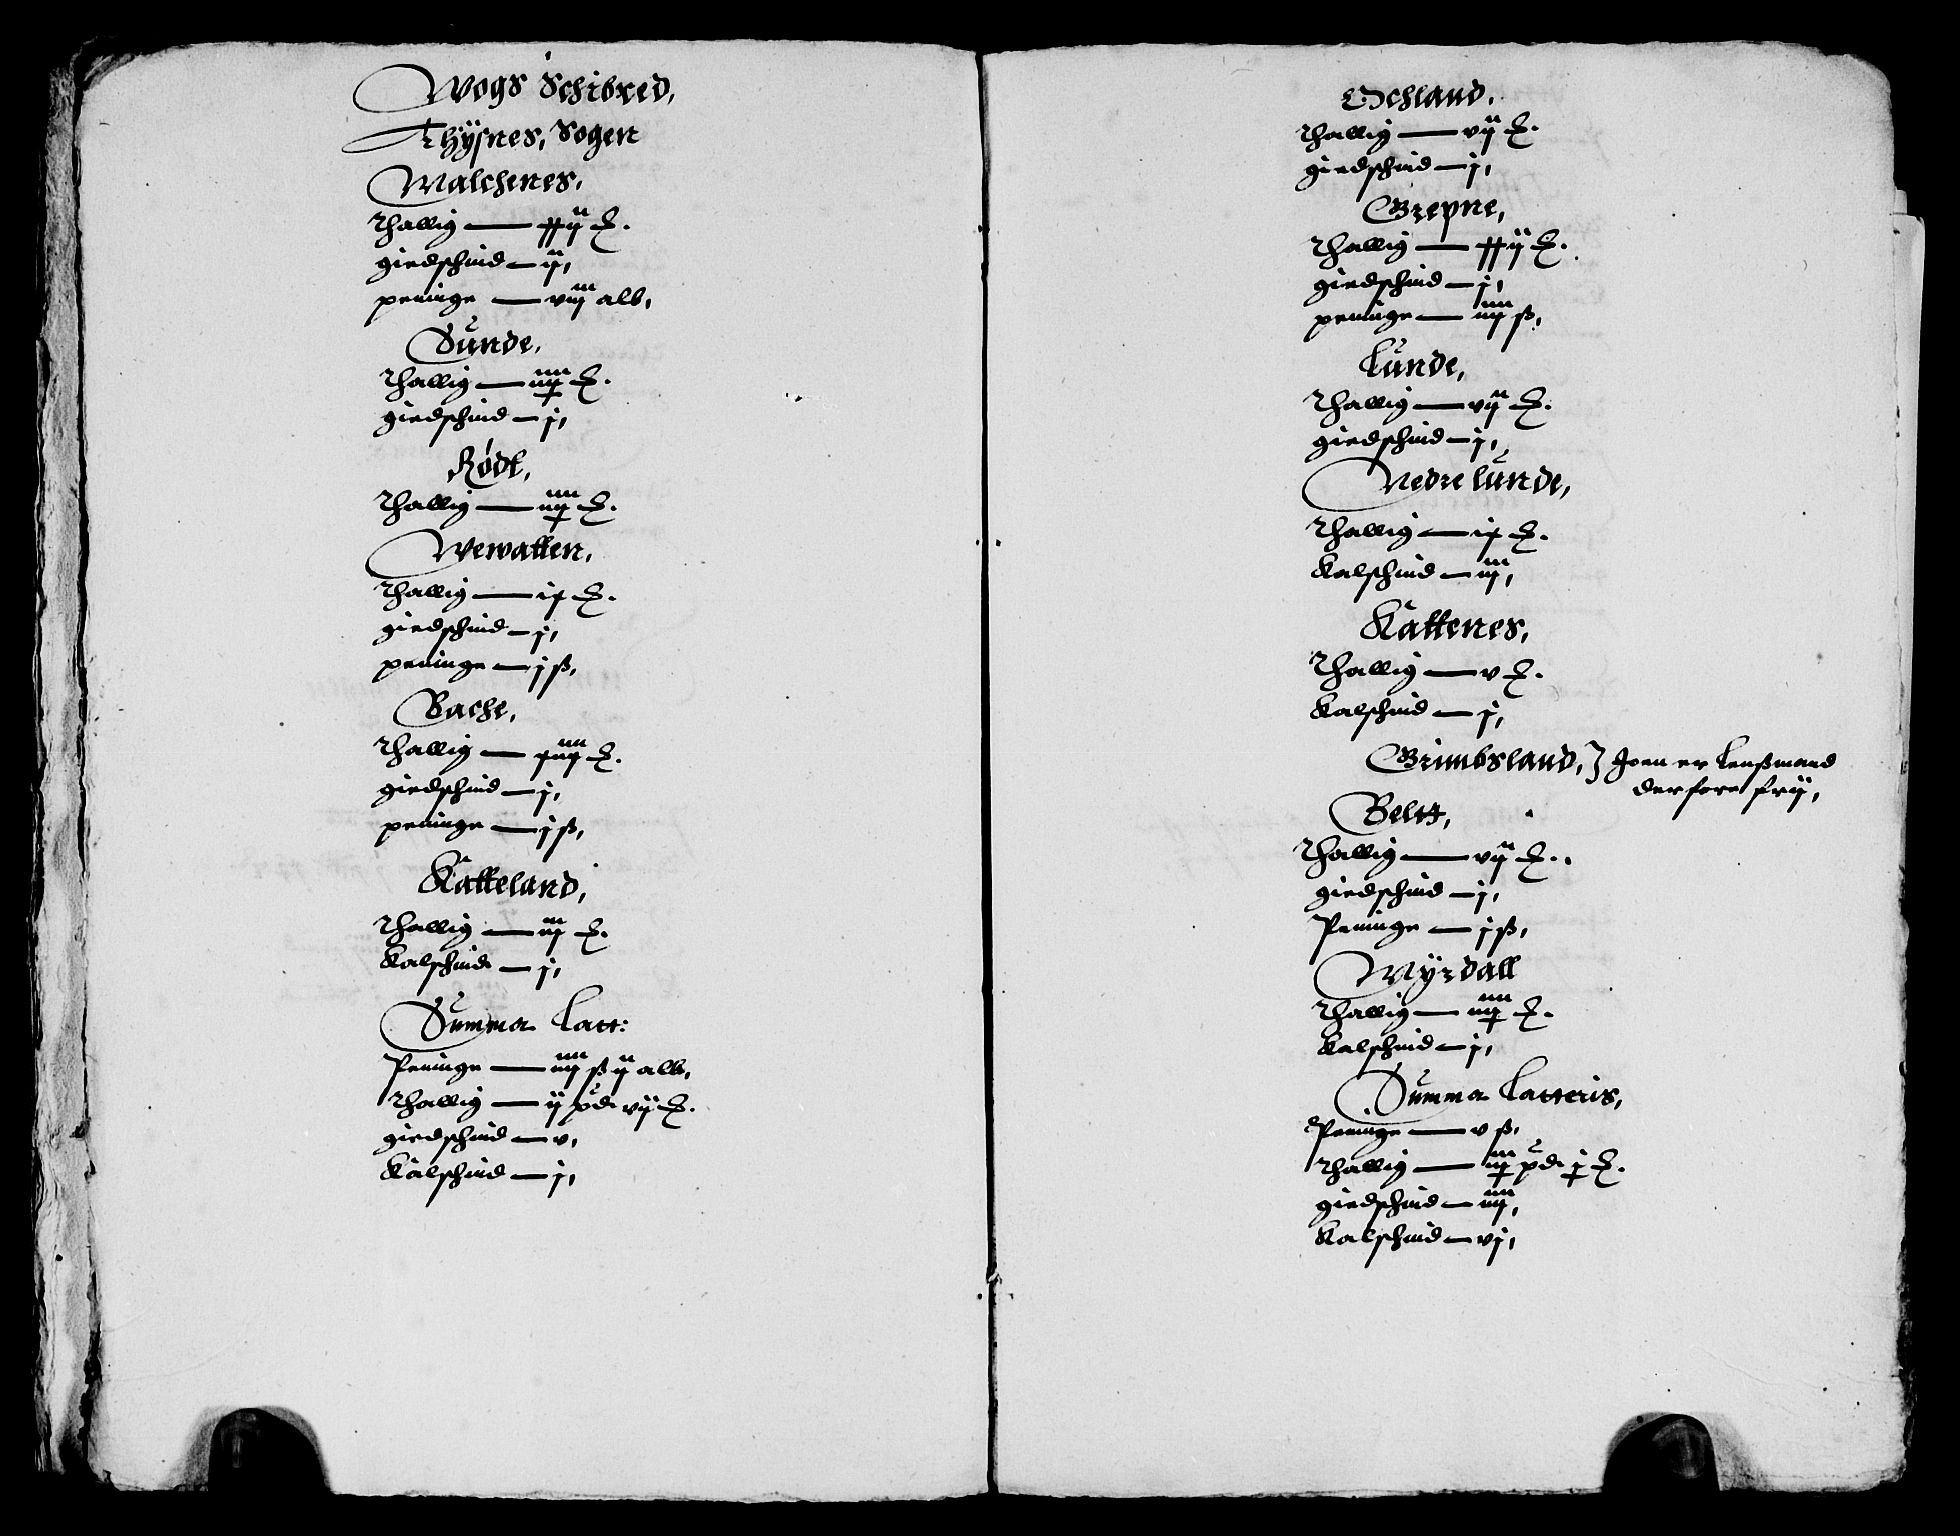 Wogs Schibred,
Thÿsnes, Sogen
Walchenes,
Thallig — xxij ℔.
giedschind — ij,
peninge — viij alb,
Sŭnde,
Thallig — iiij ℔.
giedschind — j,
Rødt,
Thallig — iiij ℔.
Wewatten,
Thallig — ix ℔.
giedschind — j,
peninge — j ß,
Bache,
Thallig — xiiij ℔.
giedschind — j,
peninge — j ß,
Katteland,
Thallig — iij ℔.
Kalschind — j,
Sŭmma Latt:
Peninge — iiij ß ij alb,
Thallig — ij pd vij ℔.
giedschind — v,
Kalschind — j,
Ochland,
Thallig — vij ℔.
giedschind — j,
Grepne,
Thallig — xxij ℔.
giedschind — j,
peninge — iiij ß,
Lŭnde,
Thallig — vij ℔.
giedschind — j,
Nedre lŭnde,
Thallig — ix ℔.
Kalschind — iij,
Kattenes,
Thallig — v ℔.
Kalschind — j,
Grimbsland, } Joen er Lenßmand
derfore frij,
Beltt,
Thallig — vij ℔.
giedschind — j,
Peninge — j ß,
Mÿrdall
Thallig — iiij ℔.
Kalschind — j,
Sŭmma Latteris,
Peninge — v ß,
Thallig — iij pd j ℔.
giedschind — iiij,
Kalschind — vj,